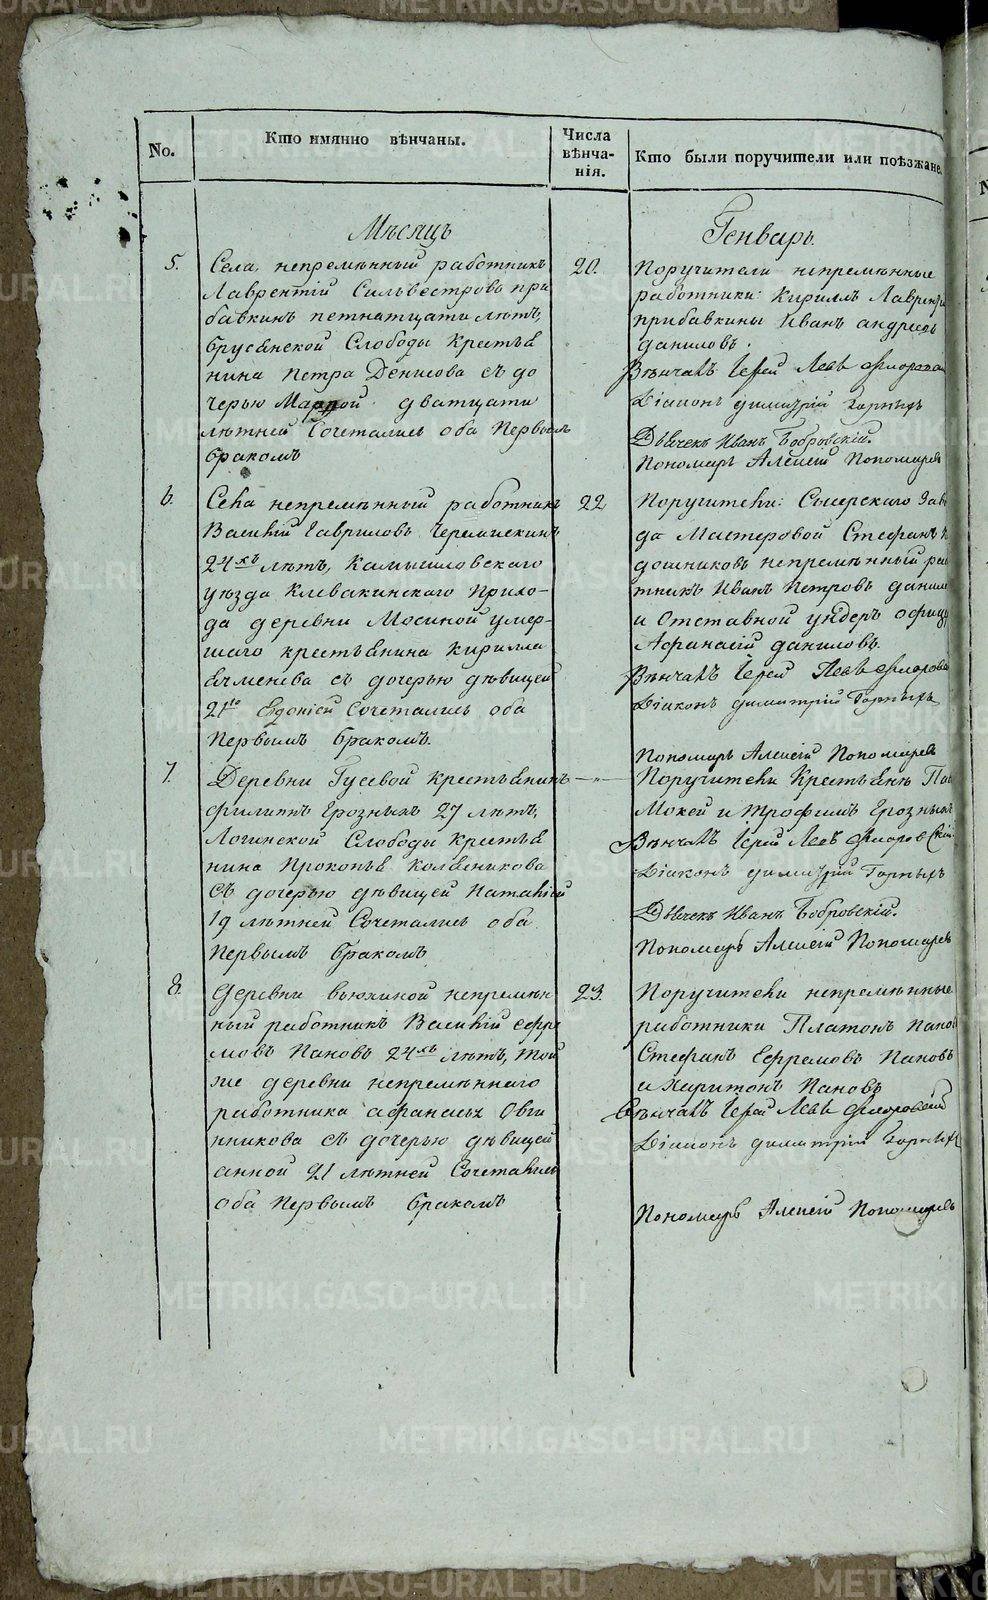 No.
Кто имянно вѣнчаны.
Числа
вѣнча-
нія.
Кто были поручители или поѣзжане.
Мѣсяцъ
Генварь.
5.
Села, непремѣнный работникъ
Лаврентій Сильвестровъ при
бавкинъ петнатцати лѣтъ,
брусянской Слободы Крестья
нина Петра Денисова съ до
черью Марфой дватцати
лѣтней Сочетались оба Первымъ
бракомъ
20.
Поручители непремѣнные
работники: Кириллъ Лаврентье
прибавкины Иванъ андреевъ
даниловъ.
Вѣнчалъ Іерей Левъ
Діаконъ димитрій Горныхъ
Дьячекъ Иванъ Бобровскій.
Пономарь Алексій Пономаревъ
6.
Села непремѣнный работникъ
Василій Гавриловъ Черемискинъ
24хъ лѣтъ, Камышловскаго
уѣзда Клевакинскаго Прихо-
да деревни Мосиной умер-
шаго крестьянина Кирилла
Ячменева съ дочерью дѣвицей
21го Евдокіей Сочетались оба
Первымъ бракомъ.
22
Поручители: Сысерскаго Заво
да Мастеровой Стефанъ
дошниковъ непремѣнный раб
тникъ Иванъ Петровъ данил
и Отставной ундеръ офице
Афанасій даниловъ.
Вѣнчалъ Іерей Левъ Флоровск
Діаконъ димитрій Горныхъ
Пономарь Алексій Пономаревъ
7.
Деревни Гусевой крестьянинъ
филиппъ Ерозныхъ 27 лѣтъ,
Логинской Слободы крестья
нина Прокопья Колясникова
съ дочерью дѣвицей Наталіей
19 лѣтней Сочетались оба
Первымъ бракомъ
— „ —
Поручители Крестьяне Пав
Мокей и трофимъ Ерозныхъ
Вѣнчалъ Іерей Левъ Флоровскій.
Діаконъ димитрій Горныхъ
Дьячекъ Иванъ Бобровскій.
Пономарь Алексій Пономаревъ
8.
Деревни вьюхиной непремѣн
ный работникъ Василій ефре
мовъ Пановъ 24хъ лѣтъ, той
же деревни непремѣннаго
работника афанасья Овчи
нникова съ дочерью дѣвицей
анной 21 лѣтней Сочетались
оба Первымъ бракомъ
23.
Поручители непремѣнные
работники Платонъ Панов
Стефанъ Ефремовъ Пановъ
и Харитонъ Пановъ
Вѣнчалъ Іерей Левъ Флоровскій
Діаконъ димитрій Горныхъ
Пономарь Алексій Пономаревъ
METRIKI.GASO-URAL.RU